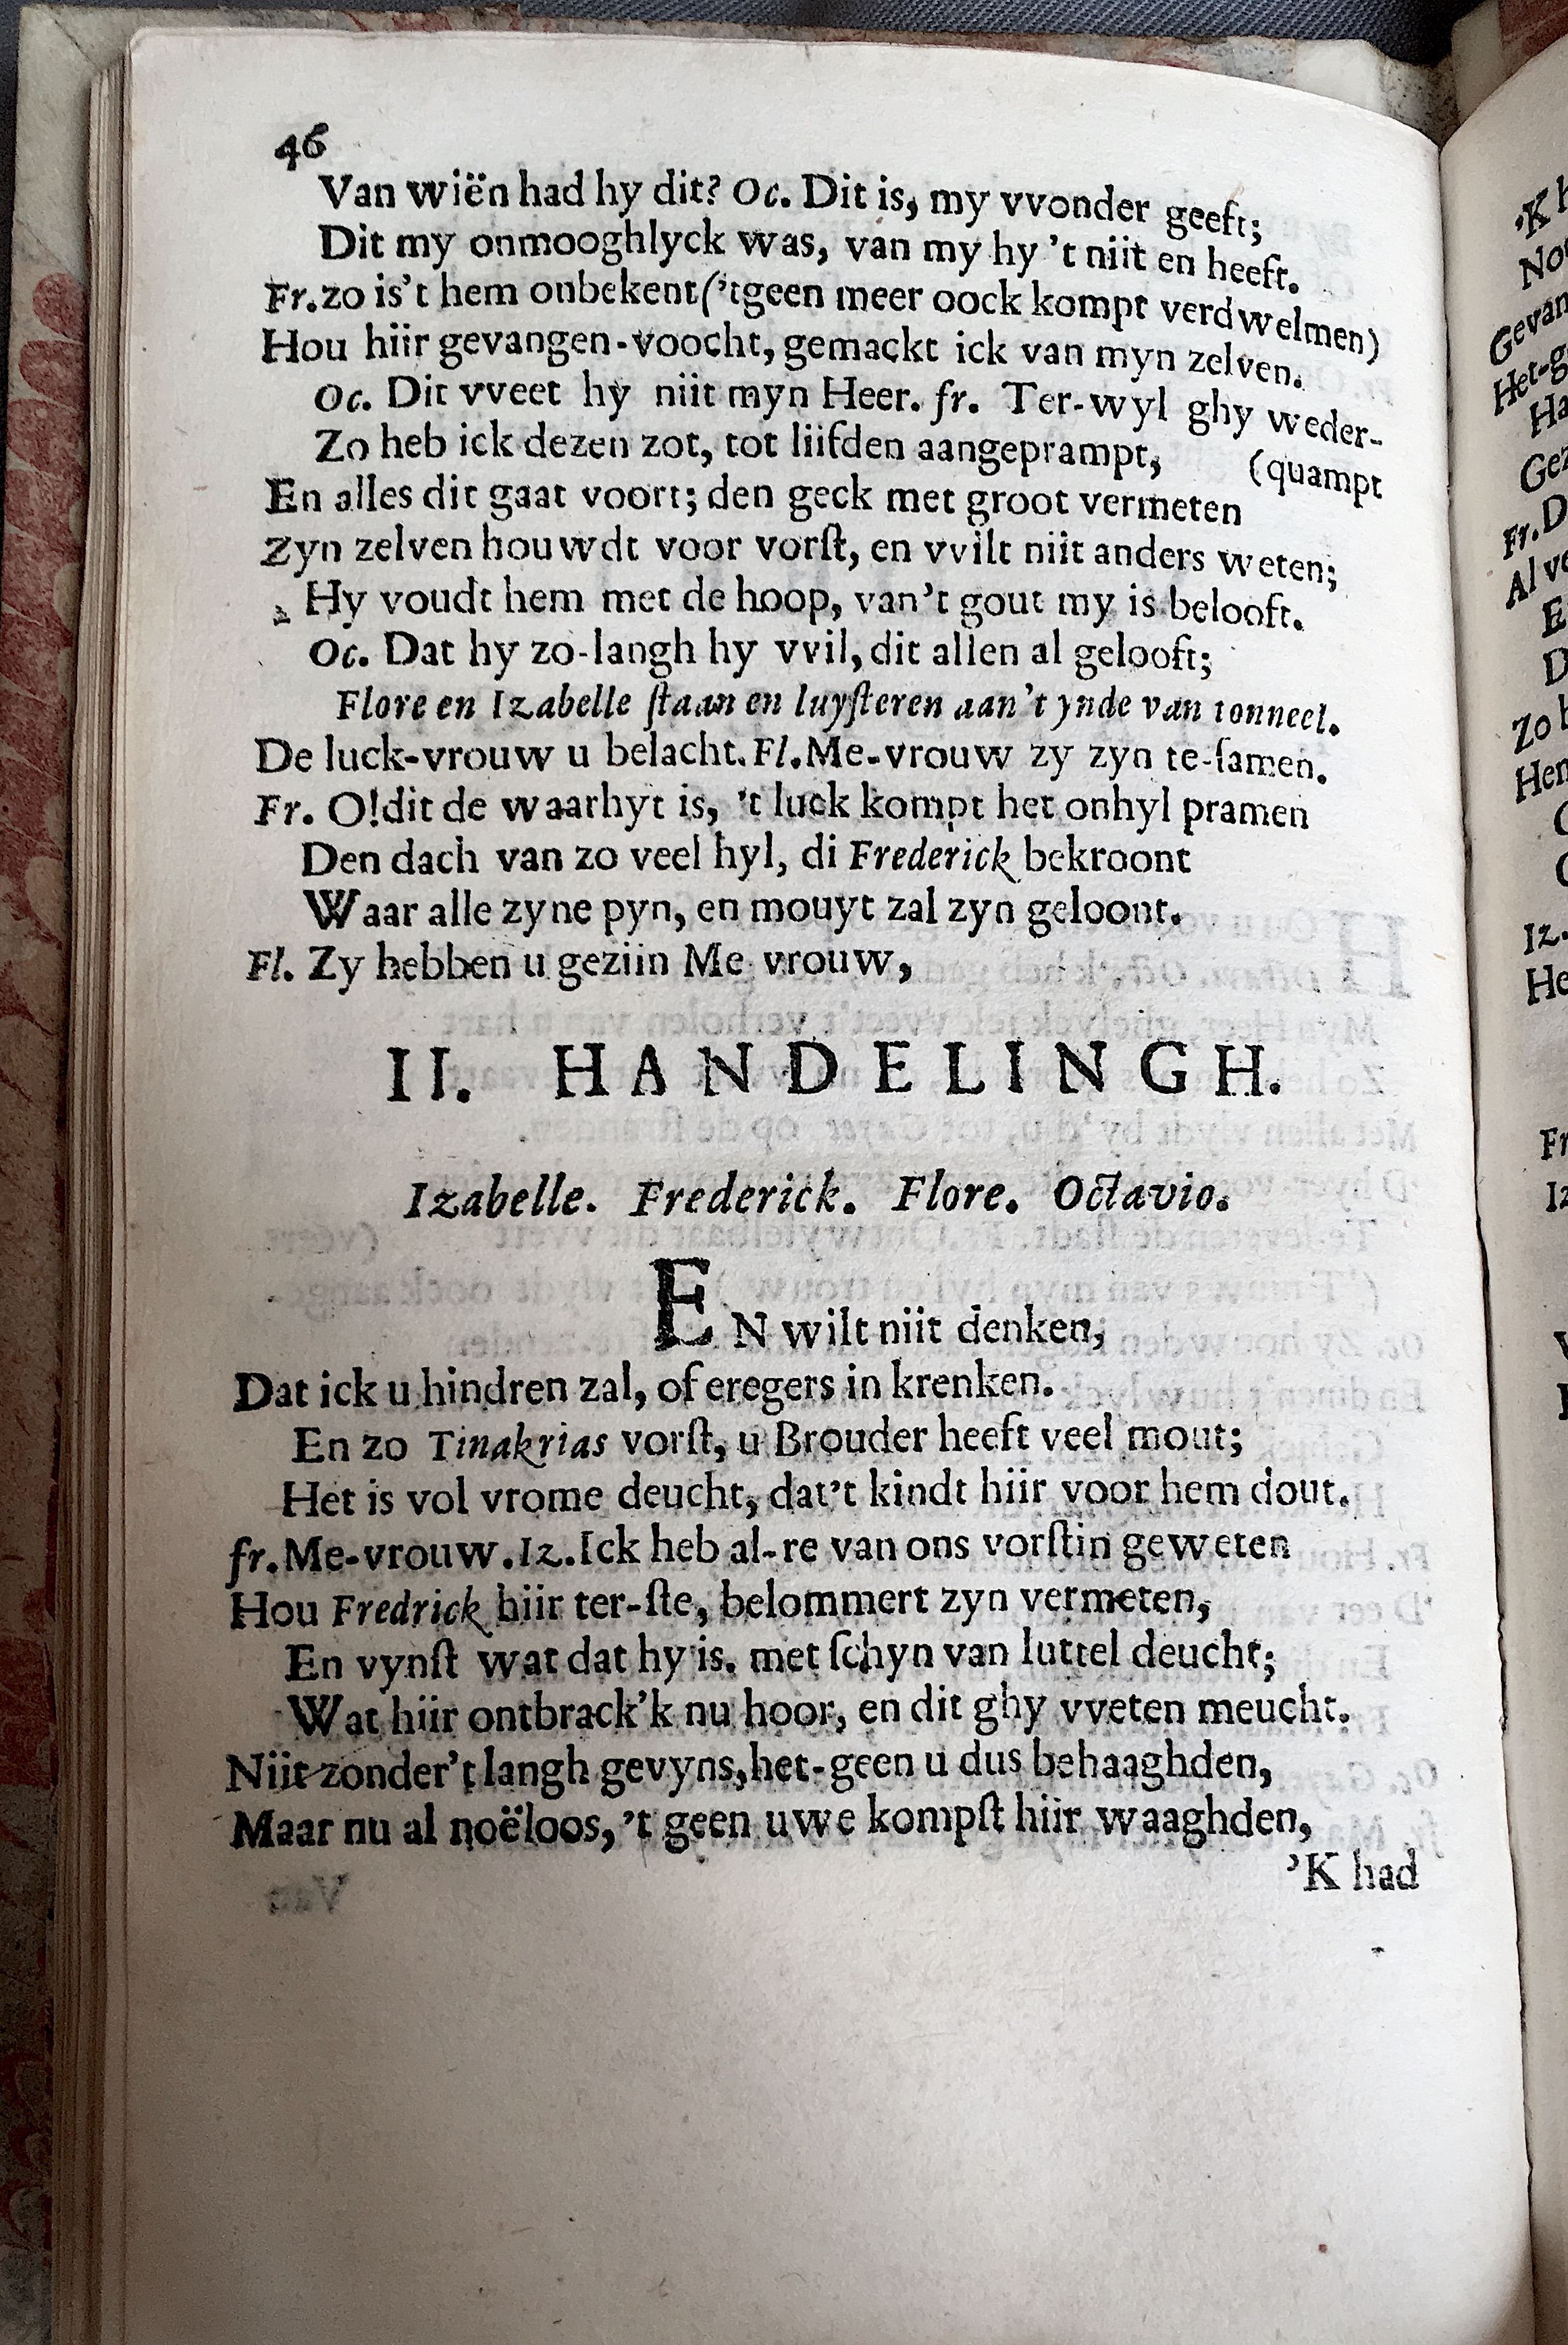 46
Van wiën had hy dit? Oc. Dit is, my vvonder geeft;
Dit my onmooghlyck was, van my hy 't niit en heeft.
Fr. zo is't hem onbekent ('tgeen meer oock kompt verdwelmen)
Hou hiir gevangen-voocht, gemackt ick van myn zelven.
Oc. Dit vveet hy niit myn Heer. fr. Ter-wyl ghy weder-
Zo heb ick dezen zot, tot liifden aangeprampt, (quampt
En alles dit gaat voort; den geck met groot vermeten
Zyn zelven houwdt voor vorſt, en vvilt niit anders weten;
Hy voudt hem met de hoop, van't gout my is belooft.
Oc. Dat hy zo-langh hy vvil, dit allen al gelooft;
Flore en Izabelle ſtaan en luyſteren aan't ynde van tonneel.
De luck-vrouw u belacht. Fl. Me-vrouw zy zyn te-ſamen.
Fr. O! dit de waarhyt is, 't luck kompt het onhyl pramen
Den dach van zo veel hyl, di Frederick bekroont
Waar alle zyne pyn, en mouyt zal zyn geloont.
Fl. Zy hebben u geziin Me vrouw,
II. HANDELINGH.
Izabelle. Frederick. Flore. Octavio.
EN wilt niit denken,
Dat ick u hindren zal, of eregers in krenken.
En zo Tinakrias vorſt, u Brouder heeft veel mout;
Het is vol vrome deucht, dat't kindt hiir voor hem dout.
fr. Me-vrouw. Iz. Ick heb al-re van ons vorſtin geweten
Hou Fredrick hiir ter-ſte, belommert zyn vermeten,
En vynſt wat dat hy is. met ſchyn van luttel deucht;
Wat hiir ontbrack'k nu hoor, en dit ghy vveten meucht.
Niit zonder't langh gevyns, het-geen u dus behaaghden,
Maar nu al noëloos, 't geen uwe kompſt hiir waaghden,
'K had